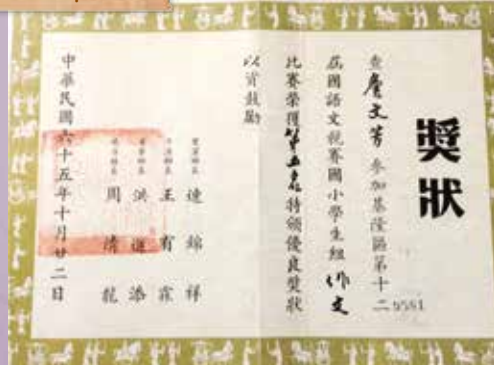 獎狀
查詹文芳參加基隆區第十二
屆國語文競賽國小學生組作文
比賽榮獲第五名特頒優良獎狀
以資鼓勵
連錦祥
王宥霖
洪進添
周清龍
中華民國六十五年十月廿二日
9551